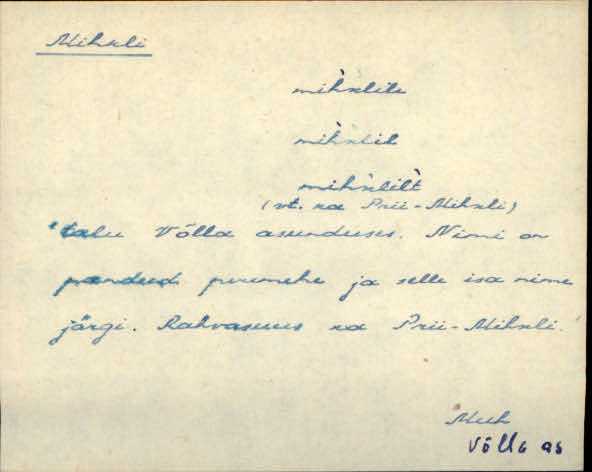 Mihkli
mìhklile
mìhklil
mihklìlt
(vt. ka Prii-Mihkli)
talu Võlla asunduses. Nimi on
pandud peremehe ja selle isa nime
järgi. Rahvasuus ka Prii-Mihkli.
Muh
Võlla as